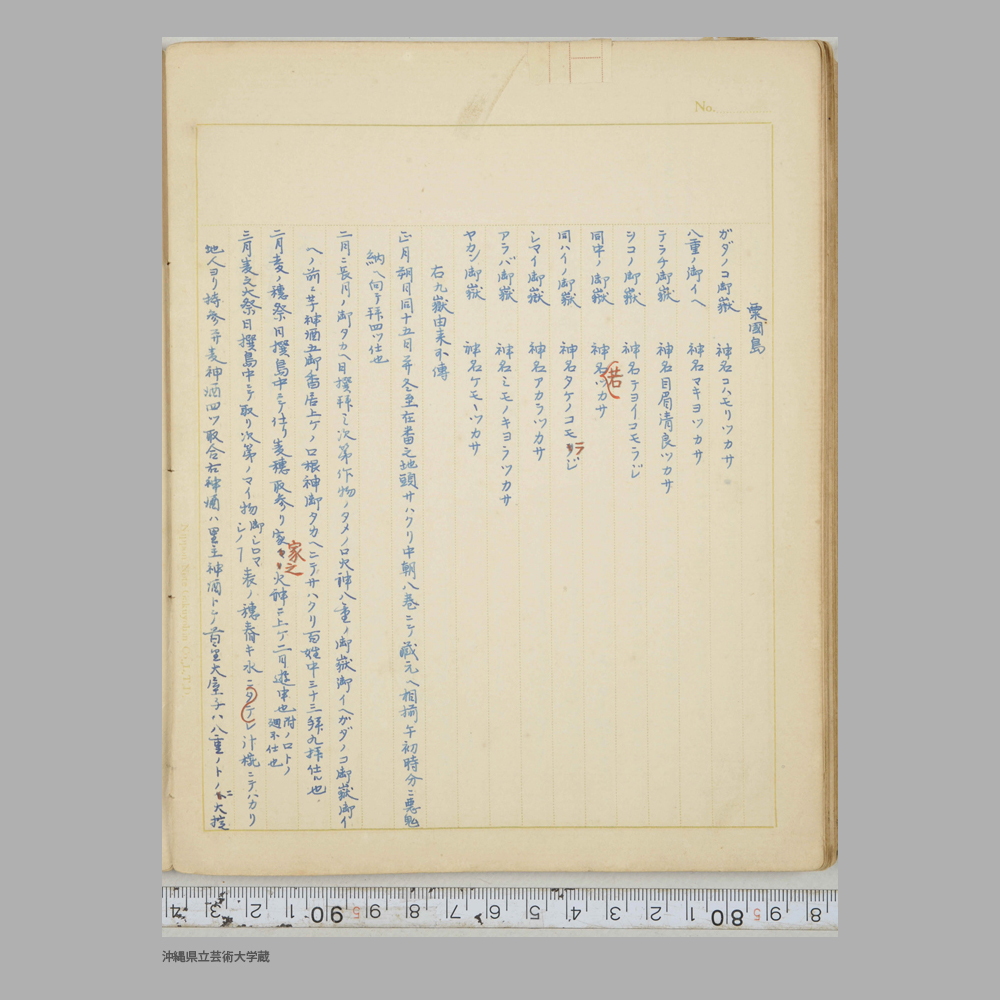 No.
粟國島
ガダノコ御嶽 神名コハモリツカサ
八重ノ御イヘ 神名マキヨツカサ
テラチ御嶽 神名目眉清良ツカサ
シコノ御嶽 神名テヨイコモラジ
同中ノ御嶽 神名ツカサ
若
同ハイノ御嶽 神名タケノコモラジ
シマイ御嶽 神名アカラツカサ
アラバ御嶽 神名ミモノキヨラツカサ
ヤカン御嶽 神名ケモヽツカサ
右九嶽由来不傳
正月朔日同十五日并冬至在番之地頭サハクリ中朝八巻ニテ蔵元ヘ相揃午初時分ニ悪鬼
納ヘ向テ拝四ツ仕也
二月ニ長月ノ御タカヘ日撰拝ミ次第作物ノタメノ口火神八重ノ御嶽御イヘガダノコ御嶽御イ
ヘノ前ニ芋神酒五御番居上ケノロ根神御タカヘニテサハクリ百姓中三十三拜九拝仕ル也
二月麦ノ穂祭日撰島中ニテ仕リ麦穂取参リ家々火神ニ上ケ二月遊申也 附ノロトノ廻不仕也
家之
三月麦之大祭日撰島中ニテ取リ次第ノマイ物 御シロマシノ 表ノ穂舂キ水ニタテシ汁椀ニテハカリ
地人ヨリ持参并麦神酒四ツ取合右神酒ハ里主神酒トテ首里大屋子ハ八重ノトノニ大掟
4 3 2 1 90 9 5 8 7 6 5 4 3 2 1 80 9 5 8
沖縄県立芸術大学蔵